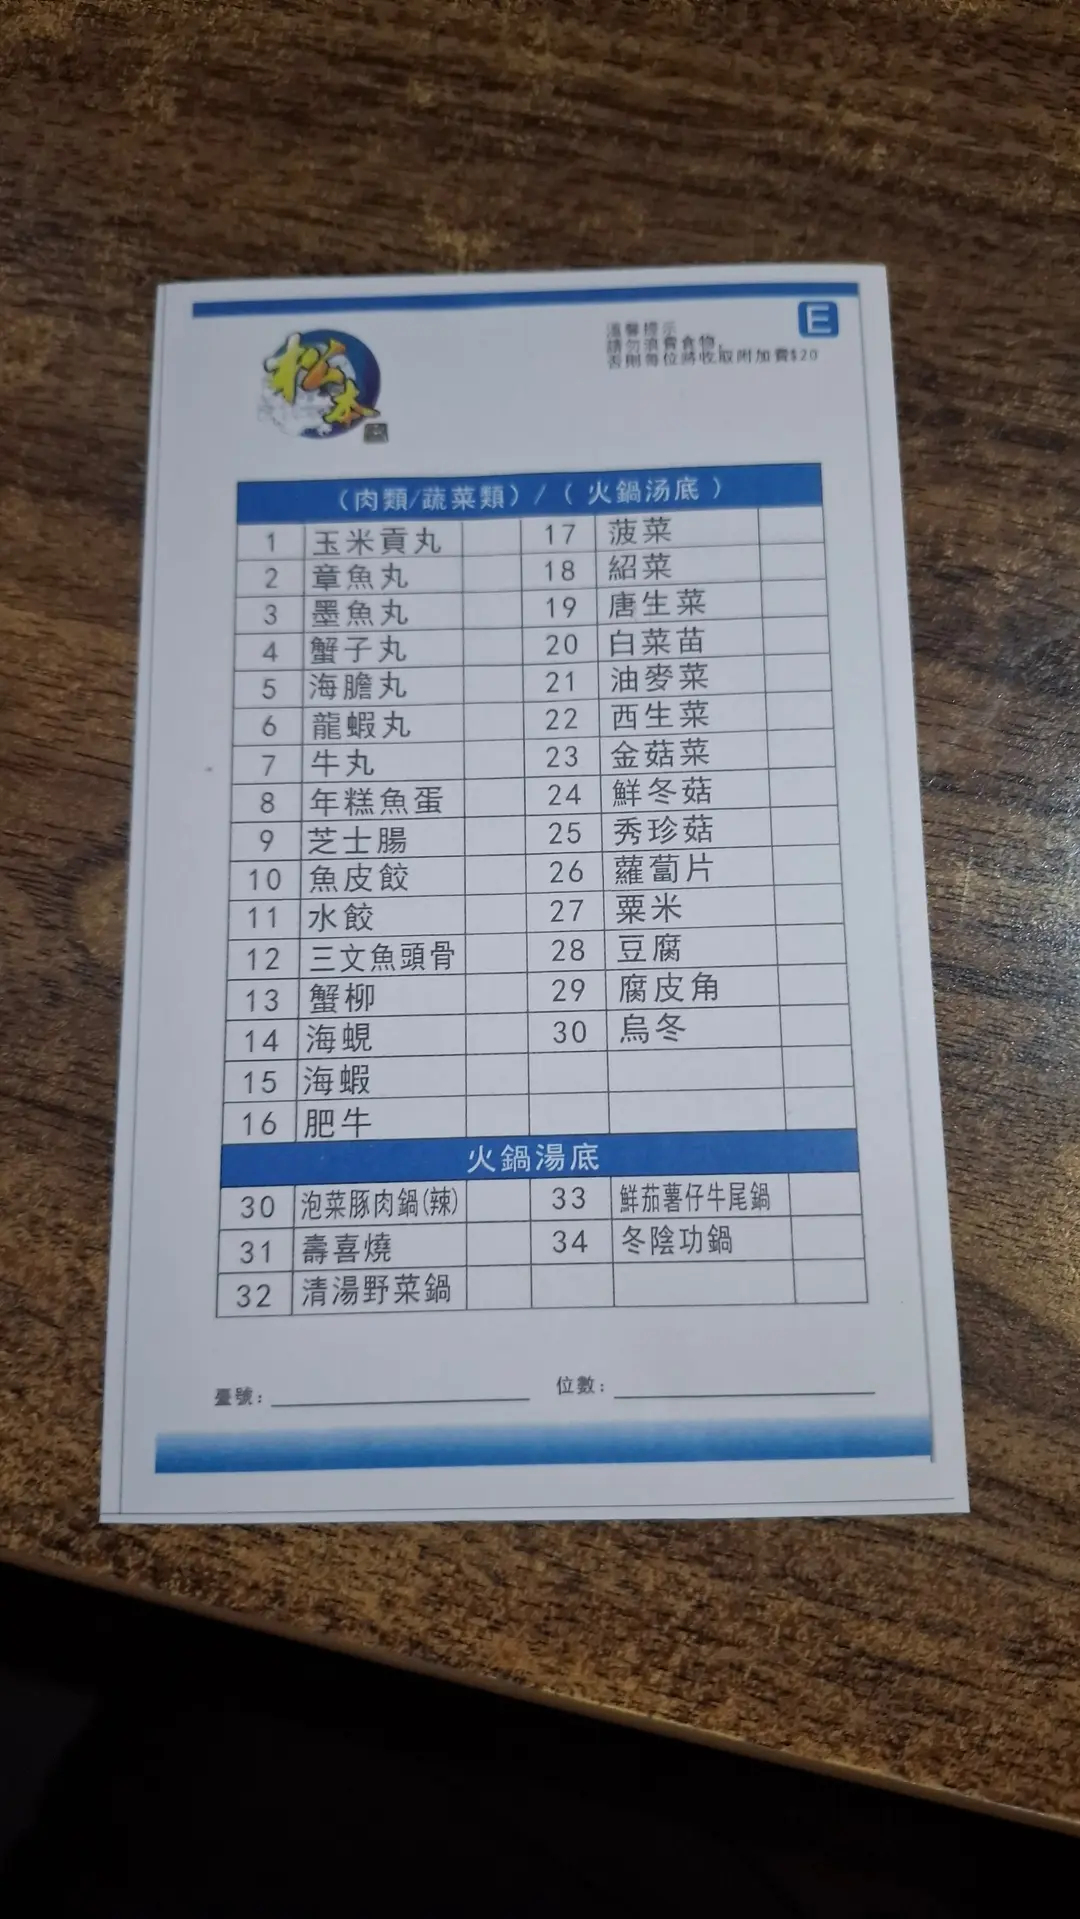 松本
E
溫馨提示
請勿浪費食物,
否則每位將收取附加費$20
(肉類/蔬菜類)/(火鍋汤底)
1 玉米貢丸 17 菠菜
2 章魚丸 18 紹菜
3 墨魚丸 19 唐生菜
4 蟹子丸 20 白菜苗
5 海膽丸 21 油麥菜
6 龍蝦丸 22 西生菜
7 牛丸 23 金菇菜
8 年糕魚蛋 24 鮮冬菇
9 芝士腸 25 秀珍菇
10 魚皮餃 26 蘿蔔片
11 水餃 27 粟米
12 三文魚頭骨 28 豆腐
13 蟹柳 29 腐皮角
14 海蜆 30 烏冬
15 海蝦
16 肥牛
火鍋湯底
30 泡菜豚肉鍋(辣) 33 鮮茄薯仔牛尾鍋
31 壽喜燒 34 冬陰功鍋
32 清湯野菜鍋
臺號: 位數: